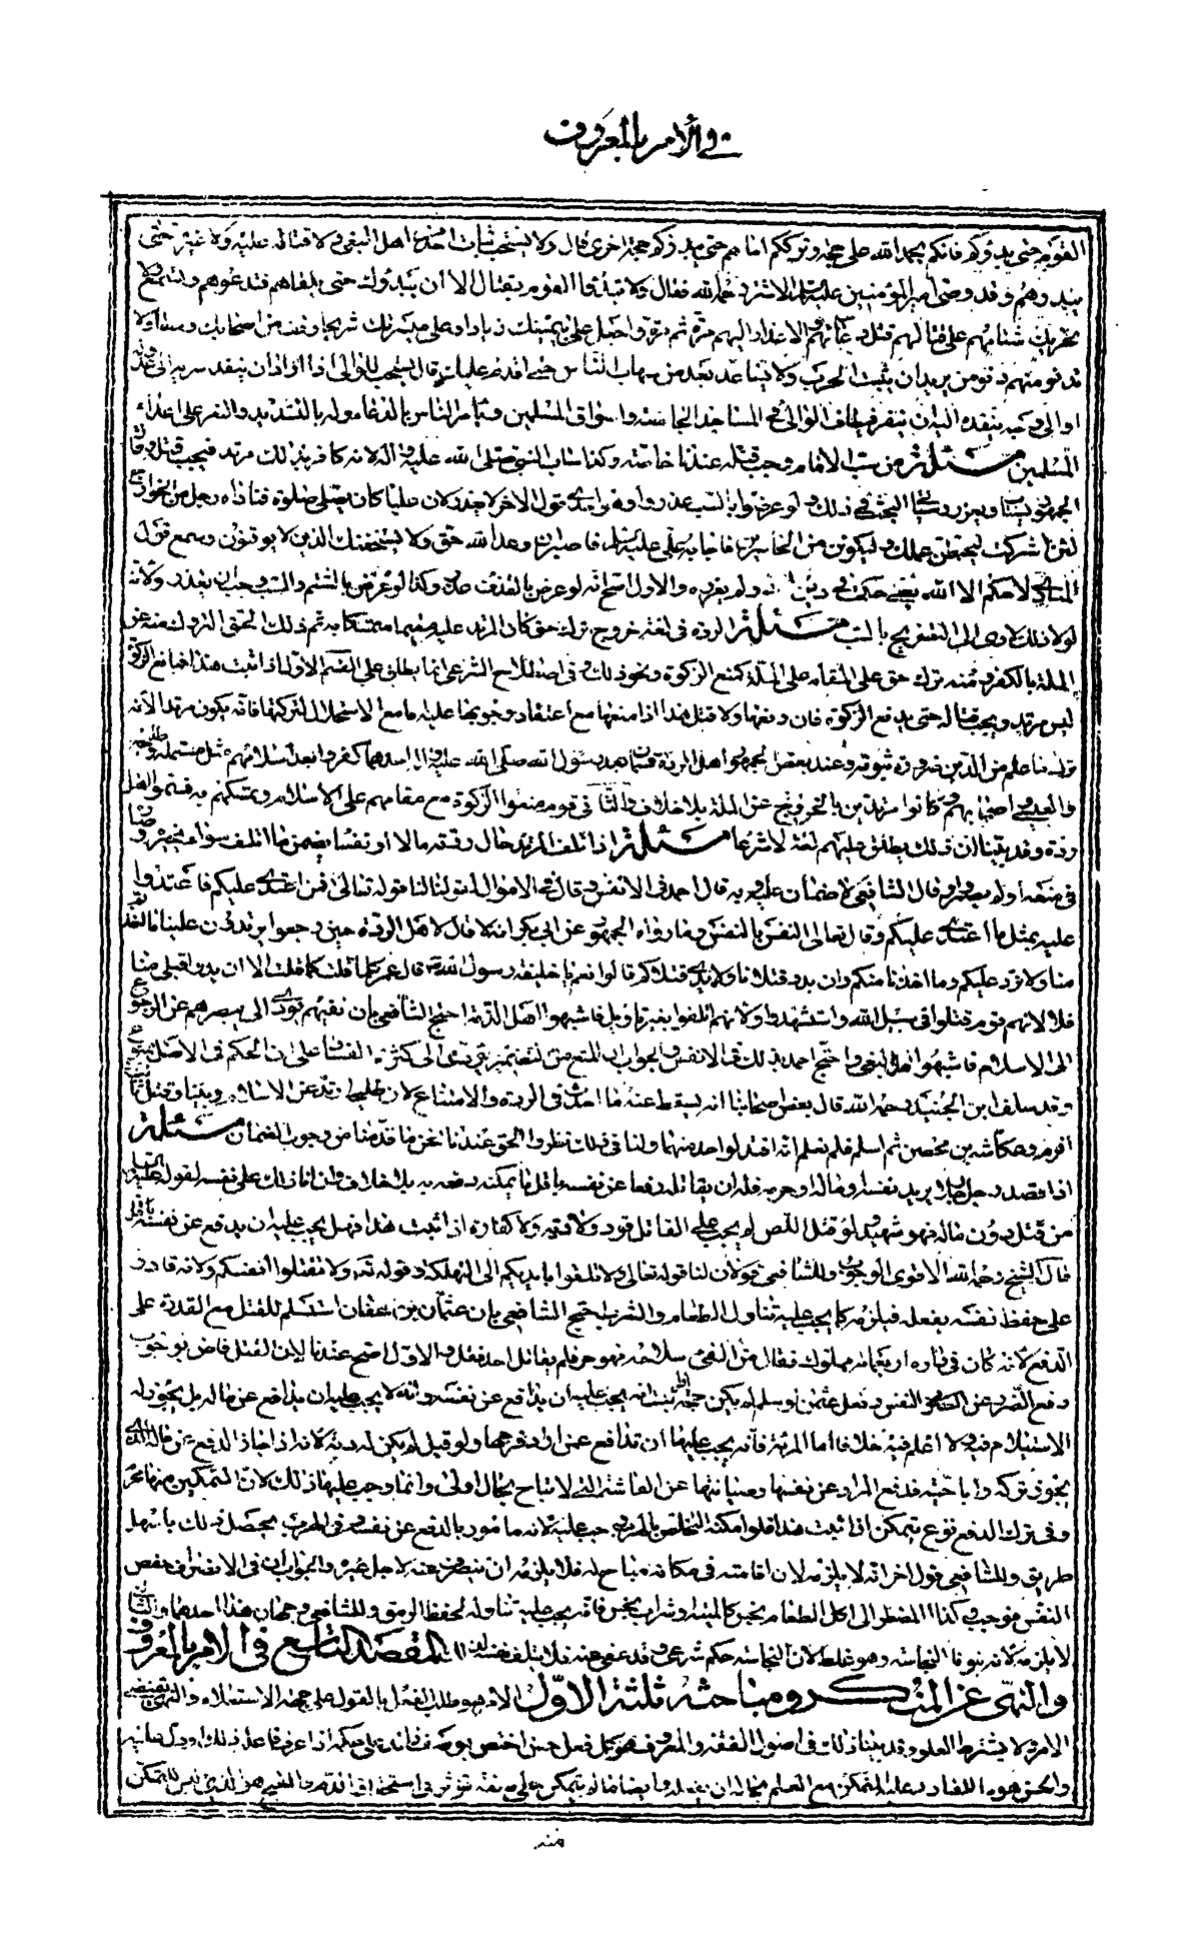 في الأمر بالمعروف
القوم حتى يبدؤكم فانكم بحمد الله على حجة وترككم اياهم حتى يبدؤكم حجة اخرى قال ولا يستحب اهل البغي ولا قتاله عليه ولا غيره حتى
يبدوهم وقد وصى امير المؤمنين عليه السلام الاشتر رحمه الله فقال ولا تبدؤا القوم بقتال الا ان يبدؤك حتى تلقاهم فتدعوهم وتسمع
شنانهم على قتالهم قبل دعائهم والاعذار اليهم مرة بعد مرة واجعل على ميمنتك زيادا وعلى ميسرتك شريحا وقف من اصحابك وسطا ولا
تدنو منهم دنو من يريد ان ينشب الحرب ولا تباعد تباعد من يهاب الناس حتى اقدم عليك قال يستحب للوالي اذا اراد ان ينفذ سرية الى
او الى وجه ينفذه اليه ان يطاف الوالي في المساجد الجامعة واسواق المسلمين ويأمر الناس بالدعاء وله بالتسديد والنصر على اعداء
المسلمين مسئلة من سب الامام وجب قتله عندنا خاصة وكذا ساب النبي صلى الله عليه واله لانه كافر بذلك مرتد فيجب قتله وقال
الجمهور يستتاب ويعزر وسيأتي البحث في ذلك ولو عرضوا بالسب عزروا وفي قول الاخر لا يعزر لان عليا كان يصلي صلوة فناداه رجل من الخوارج
لئن اشركت ليحبطن عملك ولتكونن من الخاسرين فاجابه علي عليه السلام فاصبر ان وعد الله حق ولا يستخفنك الذين لا يوقنون وسمع قول
لا حكم الا لله ولم يعزره والاول اصح لانه لو عرض بالقذف حد وكذا لو عرض بالشتم والسب وجب ان يعزر ولانه
لولا ذلك لادى الى التصريح بالسب مسئلة الردة في لغة خروج ترك حق كان المرتد عليه مقيما متمسكا به ثم ذلك الحق المتروك منه عن
الملة بالكفر ومنه ترك حق على المقام على الملة كمنع الزكوة ونحو ذلك وفي اصطلاح الشرعي انما يطلق على القسم الاول اذا ثبت هذا فمانع الزكوة
ليس مرتد ويجب قتاله حتى يدفع الزكوة فان دفعها ولا قتل هذا اذا منعها مع اعتقاد وجوبها عليه مع الاستحلال لتركها فانه يكون مرتدا لانه
ترك ما علم من الدين ضرورة ثبوته وعند بعض الجمهور اهل الردة قسمان بعد رسول الله صلى الله عليه واله احدهما كفروا بعد اسلامهم مثل مسيلمة وطليحة
والعنسي واصحابهم وكانوا مرتدين بالخروج عن الملة بلا خلاف والثاني قوم منعوا الزكوة مع مقامهم على الاسلام وتمسكهم به فسموا اهل
ردة وقد بينا ان ذلك يطلق عليهم لغة لا شرعا مسئلة اذا اتلف المرتد حال ردته مالا او نفسا يضمن ما اتلف سواء تحيز وصار
في منعة او لم يصر وقال الشافعي لا ضمان عليه وبه قال احمد في الانفس وقال في الاموال لنا قوله تعالى فمن اعتدى عليكم فاعتدوا
عليه بمثل ما اعتدى عليكم وقال تعالى النفس بالنفس وما رواه الجمهور عن ابي بكر انه قال لاهل الردة حين رجعوا تردون علينا ما اخذتم
منا ولا نرد عليكم ما اخذنا منكم وان تدوا قتلانا ولا ندي قتلاكم قالوا نعم يا خليفة رسول الله قال عمر كلما قلت كما قلت الا ان يدوا قتلى منا
فلا لانهم قوم قتلوا في سبيل الله واستشهدوا ولانهم اتلفوا بغير تاويل فاشبهوا اهل الذمة احتج الشافعي بان تضمينهم يؤدي الى تنفيرهم عن الرجوع
الى الاسلام فاشبهوا اهل البغي واحتج احمد بذلك في الانفس والجواب المنع من الحكم في الاصل
وقد سلف ابن الجنيد رحمه الله قال بعض اصحابنا انه يسقط عنه ما احدث في الردة والامتناع لان طليحة ارتد عن الاسلام وقتل ثابت بن
اقرم وعكاشة بن محصن ثم اسلم فلم نعلم انه اقيد لواحد منهما ولنا في ذلك نظر والحق عندنا نحن ما قدمنا من وجوب الضمان مسئلة
اذا قصد رجل رجلا يريد نفسه او ماله او حريمه فله ان يقاتله دفعا عن نفسه باقل ما يمكنه دفعه به بلا خلاف وان اتى ذلك على نفسه لقوله عليه السلام
من قتل دون ماله فهو شهيد ولو قتل اللص لم يجب على القاتل قود ولا دية ولا كفارة اذا ثبت هذا فهل يجب عليه ان يدفع عن نفسه
قال الشيخ رحمه الله الاقوى الوجوب وللشافعي قولان لنا قوله تعالى ولا تلقوا بايديكم الى التهلكة وقوله تعالى ولا تقتلوا انفسكم ولانه قادر
على حفظ نفسه بفعله فيلزمه كما يجب عليه تناول الطعام والشرب احتج الشافعي بان عثمان بن عفان استسلم للقتل مع القدرة على
الدفع لانه كان في داره اربعمائة مملوك فقال من القى سلاحه فهو حر فلم يقاتل احد فقتل والاول اصح عندنا لان العقل قاض بوجوب
دفع الضرر عن النفس وفعل عثمان لو سلم لم يكن حجة اذا ثبت انه يجب عليه ان يدافع عن نفسه وانه لا يجب عليه ان يدافع عن ماله بل يجوز له
الاستسلام فيه ولا اعلم فيه خلافا اما المرئة فانه يجب عليها ان تدافع عن فرجها ولو قتل لم يكن له دية لانه اذا جاز الدفع عن ماله الذي
يجوز تركه واباحته فدفع المراد عن نفسها وصيانتها عن الفاحشة التي لا تباح بحال اولى وانما وجب عليها ذلك لان التمكين منها محرم
وفي ترك الدفع نوع تمكين اذا ثبت هذا فلو امكنه التخلص بالهرب وجب عليه لانه مامور بالدفع عن نفسه وفي الهرب يحصل ذلك باسهل
طريق وللشافعي قول اخر انه لا يلزمه لان اقامته في مكانه مباح له فلا يلزمه ان ينصرف عنه لاجل غيره والجواب ان في الانصراف حفص
النفس فوجب كذا المضطر الى اكل الطعام نجس كالميتة او شراب نجس فانه يجب عليه تناوله لحفظ الرمق وللشافعي وجهان هذا احدهما والثاني
لا يلزمه لانه يتوقى النجاسة وهو غلط لان النجاسة حكم شرعي وقد عفي عنه فلا يتلف نفسه لذلك المقصد التاسع في الامر بالمعروف
والنهي عن المنكر ومباحثه ثلثة الاول الامر هو طلب الفعل بالقول على جهة الاستعلاء والنهي نقيضه
الامر ولا يشترط العلو وقد بينا ذلك في اصول الفقه والمعروف هو كل فعل حسن اختص بوصف زائد على حسنه اذا عرف فاعله ذلك او دل عليه
والحسن هو ما للقادر عليه المتمكن من العلم بحاله ان يفعله وايضا ما لم يكن على صفة تؤثر في استحقاق الذم والقبيح هو الذي ليس للمتمكن
منه